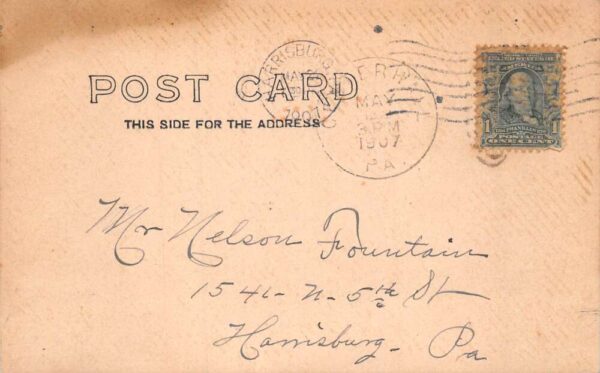 POST CARD
THIS SIDE FOR THE ADDRESS
HARRISBURG
MAY
7 00
MAY
3 PM
1907
PA
1
FRANKLIN
POSTAGE
ONE CENT
Mr Nelson Fountain
1541-N-5th St
Harrisburg, Pa